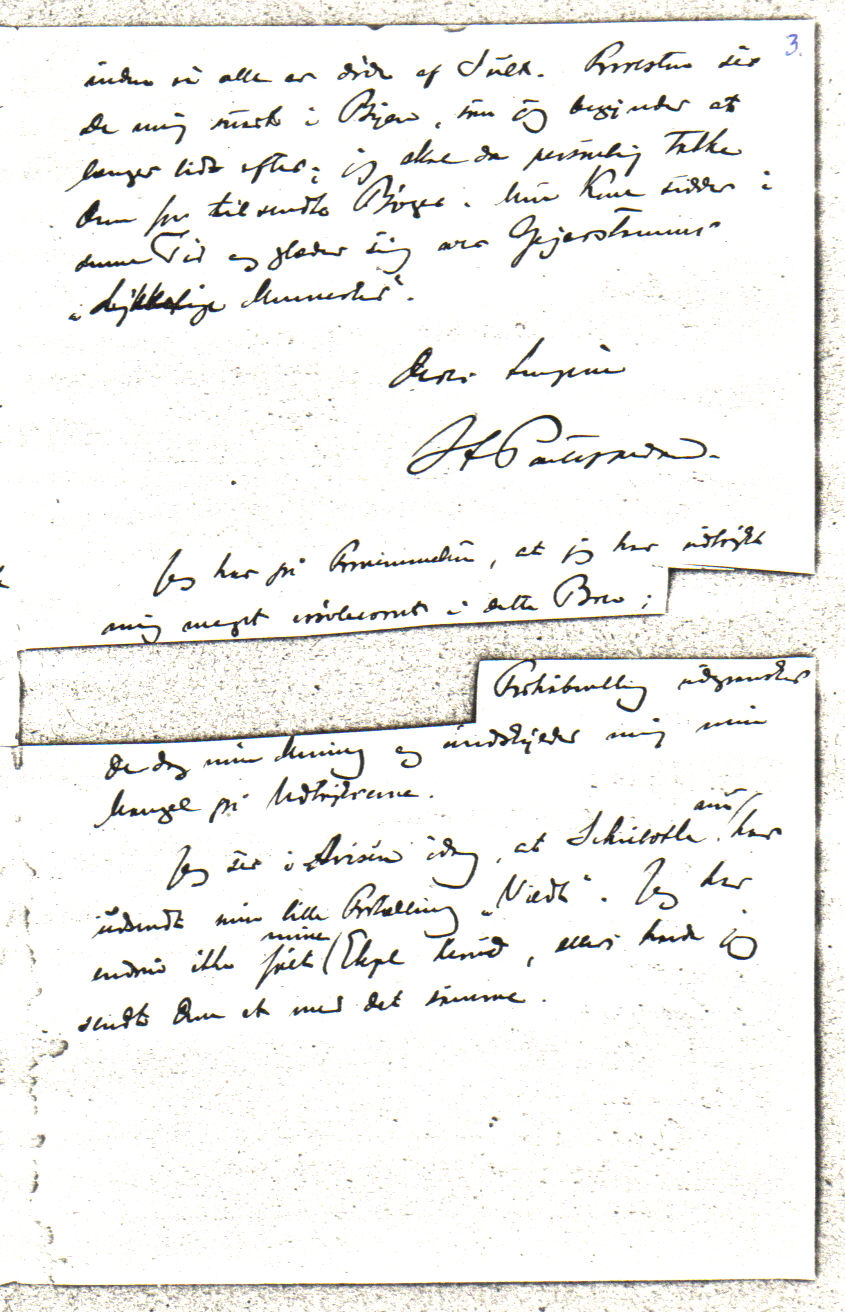 3.
inden vi alle er døde af Sult. Forresten ser
De mig snart i Byen, som jeg begynder at
længes lidt efter; jeg skal da personlig takke
Dem for tilsendte Bøger. Min Kone sidder i
denne Tid og glæder sig over Gejerstamms
"Lykkelige Mennesker".
Deres hengivne
H Pontoppidan.
Jeg har på Fornemmelsen, at jeg har udtrykt
mig meget uvolent i dette Brev;
Forhåbentlig udgransker
De dog min Mening og undskylder mig min
Mangel på Udtryksevne.
Jeg ser i Avisen idag, at Schubothe nu har
udsendt min lille Fortælling "Vildt". Jeg har
endnu ikke fået mine Expl herud, ellers havde jeg
sendt Dem et med det samme.